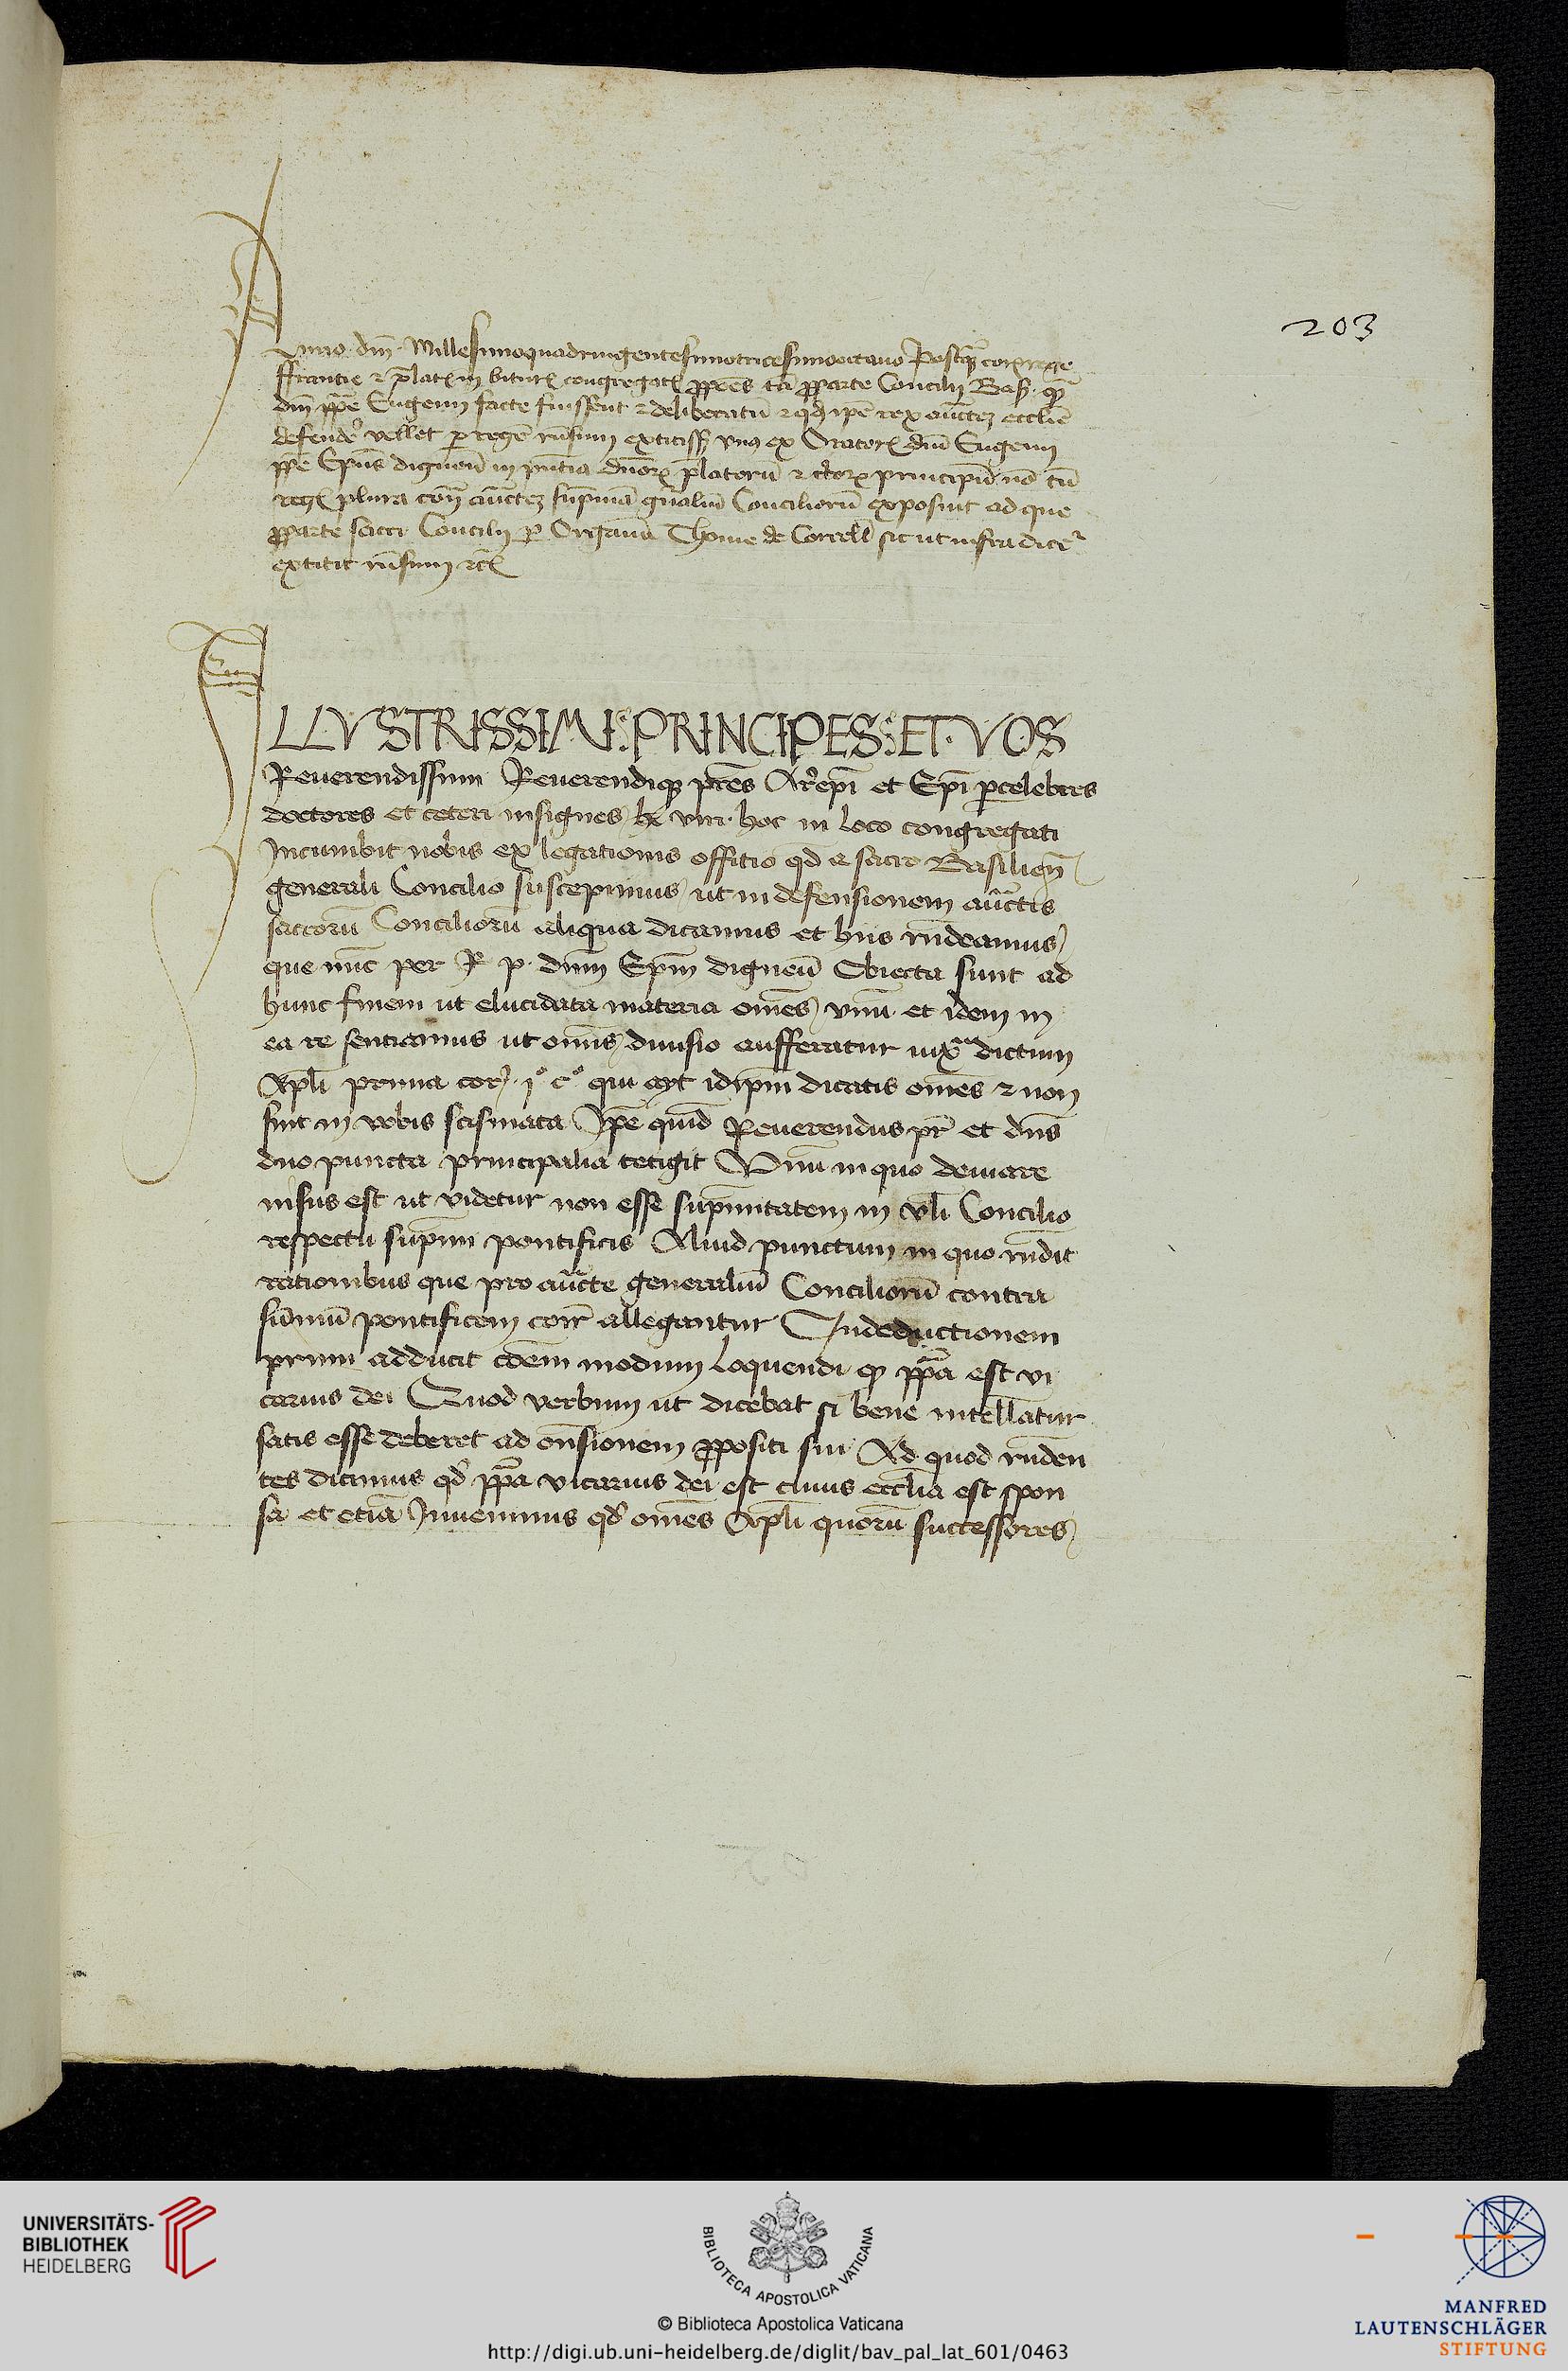 203
Anno dnī Millesimoquadringentesimotricesimooctauo Postq̄ cor rege
ffrancie ⁊ p̄lat in bitur congregat ꝓpo͞es tā ꝓparte Concilij Bas̄ q̄
dnī ppē Eugenij facte fuissent ⁊ deliberatū ⁊ qd ip̄e rex auctez ecclīe
defende vellet p regē rn̄sum extitiss vnus ex Orator dnī Eugenij
ppe Ep̄us digneñ in pn̄tia dnor p̄latorū ⁊ principū nō tn̄
reg plura con auctez sup̄mā gn̄aliū Conciliorū exposuit ad que
ꝓparte sacri Concilij p Organū Thome de Corcell sic ut infra dicet
extitit rn̄sum ⁊c
ILLVSTRISSIMI: PRINCIPES: ET VOS
Reuerendissimi Reuerendiq; pr̄es Ar̄epi et Ep̄i percelebres
doctores et ceteri insignes viri hoc in loco congregati
Incumbit nobis ex legationis offitio qd a sacro Basilien̄
generali Concilio suscepimus ut in defensionem auctis
sacrorū Conciliorū aliqua dicamus et hijs rn̄deamus
que nūc per R p dnm̄ Ep̄m digneñ Obiecta sunt ad
hunc finem ut elucidata materia om̄es vnū et idem in
ea re sentiamus ut om̄is diuisio aufferatur iuxᵃ dictum
Ap̄li prima cor. 1° c° qui ayt idip̄m dicatis om̄es ⁊ non
sint in vobis scismata Ip̄e quid Reuerendus pr̄ et dns̄
duo puncta principalia tetigit Vnū in quo deuiare
nisus est ut videtur non esse sup̄mitatem in vli Concilio
respectu sup̄mi pontificis Aliud punctum in quo rn̄dit
rationibus que pro aucte generaliū Conciliorū contra
sūmū pontificem coīr allegantur In deductionem
primi adducit cōem modum loquendi q ppa est vi
carius dei Quod verbum ut dicebat si bene intellatur
satis esse deberet ad on̄sionem ꝓpositi sui Ad quod rn̄den
tes dicimus qd ppa vicarius dei est cuius ecclīa est spon
sa et etiā Inuenimus qd om̄es Ap̄li quorū successores
UNIVERSITÄTS-
BIBLIOTHEK
HEIDELBERG
BIBLIOTECA APOSTOLICA VATICANA
© Biblioteca Apostolica Vaticana
http://digi.ub.uni-heidelberg.de/diglit/bav_pal_lat_601/0463
MANFRED
LAUTENSCHLÄGER
STIFTUNG